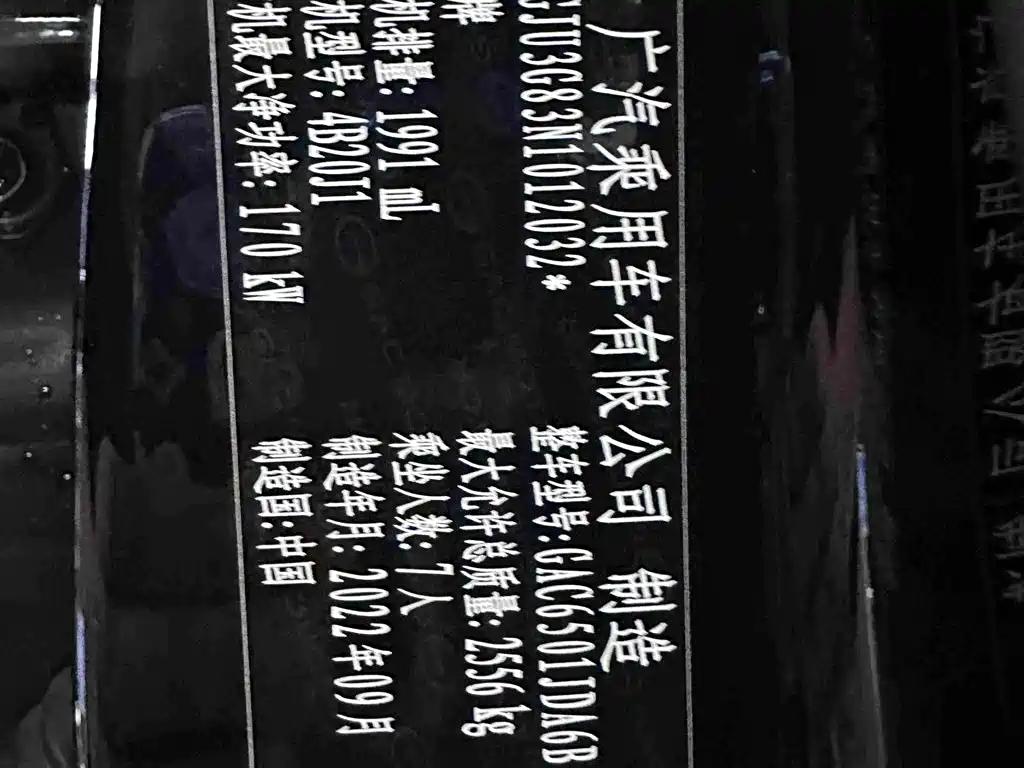 广汽乘用车有限公司 制造
GJU3G83N1012032*
整车型号:GAC6501JDA6B
牌
最大允许总质量:2556 kg
机排量: 1991 mL
乘坐人数: 7人
机型号: 4B20J1
制造年月: 2022年09月
机最大净功率: 170 kW
制造国: 中国